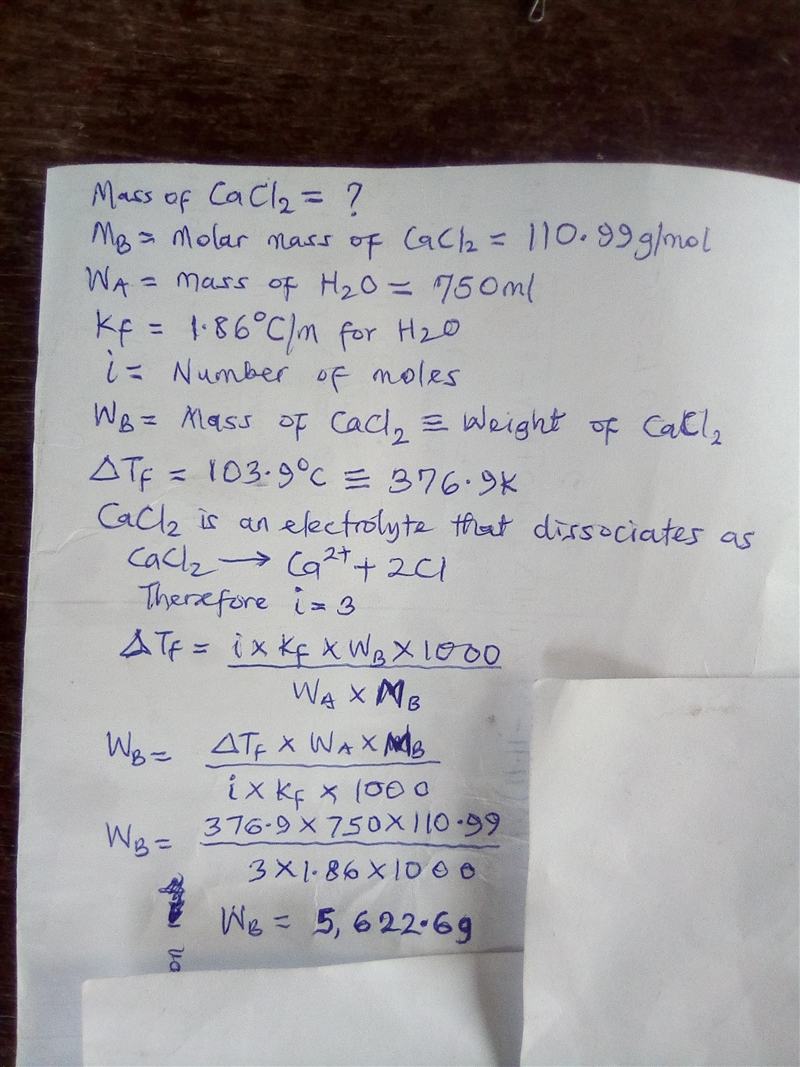 Mass of CaCl2 = ?
MB = Molar mass of CaCl2 = 110.99g/mol
WA = Mass of H2O = 750ml
Kf = 1.86°C/m for H2O
i = Number of moles
WB = Mass of CaCl2 ≡ Weight of CaCl2
ΔTf = 103.9°C ≡ 376.9K
CaCl2 is an electrolyte that dissociates as
CaCl2 → Ca2+ + 2Cl
Therefore i = 3
ΔTf = i x Kf x WB x 1000
WA x MB
WB = ΔTf x WA x MB
i x Kf x 1000
WB = 376.9 x 750 x 110.99
3 x 1.86 x 1000
WB = 5,622.6g